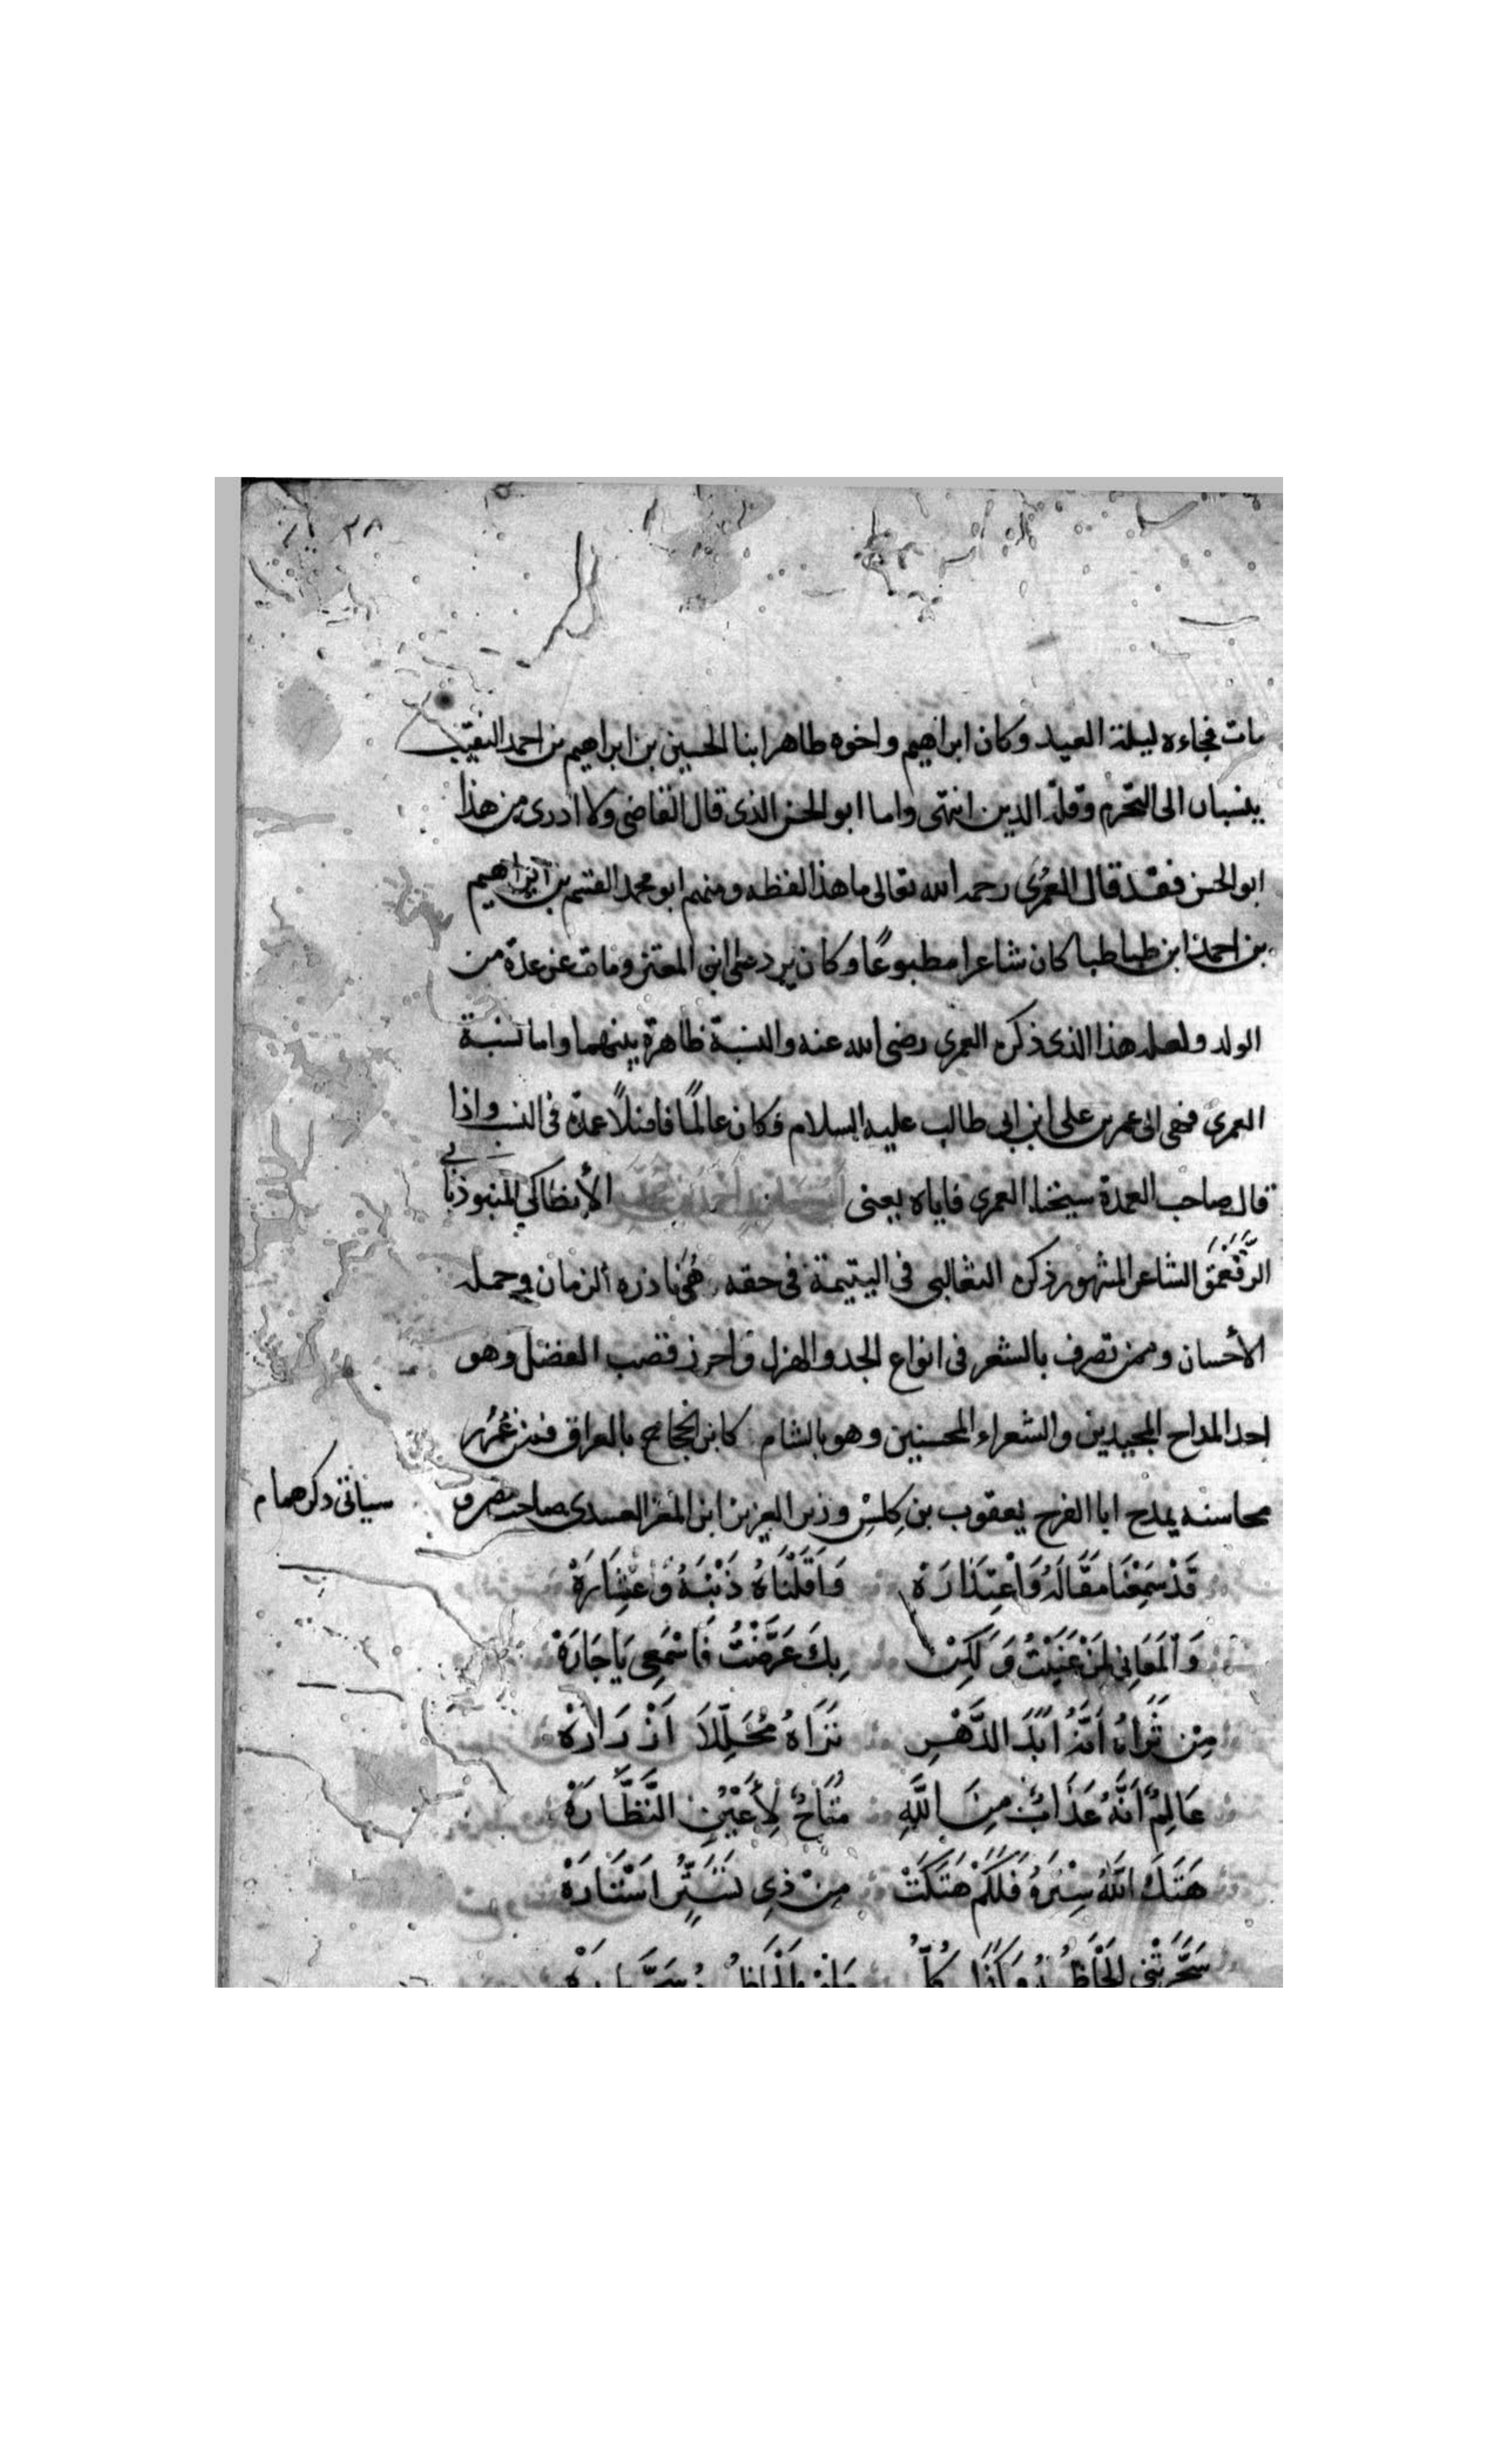 مات فجاءه ليلة العيد وكان ابراهيم واخوه طاهر ابنا الحسين بن ابراهيم بن احمد النقيب
ينسبان الى التحرم وقلة الدين انتهى واما ابو الحسن الذى قال القاضى ولا ادرى من هذا
ابو الحسن فقد قال العمرى رحمه الله تعالى ما هذا لفظه ومنهم ابو محمد القسم بن ابراهيم
بن احمد ابن طباطبا كان شاعرا مطبوعًا وكان يرد على ابن المعتز ومات عن عدة من
الولد ولعله هذا الذى ذكره العمرى رضى الله عنه والنسبة ظاهرة بينهما واما نسبة
العمرى فهى الى عمر بن على ابن ابى طالب عليه السلام وكان عالمًا فاضلاً عمدة فى النسب واذا
قال صاحب العمدة شيخنا العمرى فاياه يعنى الأنطاكي المنبوذ بابي
الرَّقَعْمَق الشاعر المشهور ذكره الثعالبى فى اليتيمة فى حقه هو نادره الزمان وجمله
الأحسان وممن تصرف بالشعر فى انواع الجد والهزل واحرز قصب الفضل وهو
احد المداح المجيدين والشعراء المحسنين وهو بالشام كابن الحجاج بالعراق فمن غُرَر
محاسنه يمدح ابا الفرج يعقوب بن كِلِس وزير العزيز ابن المعز العبيدى صاحب مصر و
سياتى ذكرهما م
قَدْ سَمِعْنَا مَقَالَهُ وَاعْتِذَارَهْ وَاَقَلْنَاهُ ذَنْبَهُ وَعِثَارَهْ
وَالْمَعَانِي لِمَنْ عَنَيْتُ وَلَكِنْ بِكَ عَرَّضْتُ فَاسْمَعِي يَا جَارَهْ
مِنْ تَرَاهُ اَنَّهُ اَبَدَ الدَّهْرِ تَرَاهُ مُحَلِّلاً اَزْرَارَهْ
عَالِمٌ اَنَّهُ عَذَابٌ مِنَ اللَّهِ مُتَاحٌ لِأَعْيُنِ النَّظَّارَهْ
هَتَكَ اللَّهُ سِتْرَهُ فَلَكَمْ هَتَكَتْ مِنْ ذِي تَسَتُّرٍ اَسْتَارَهْ
سَحَرَتْنِي اَلْحَاظُهُ وَكَذَا كُلُّ